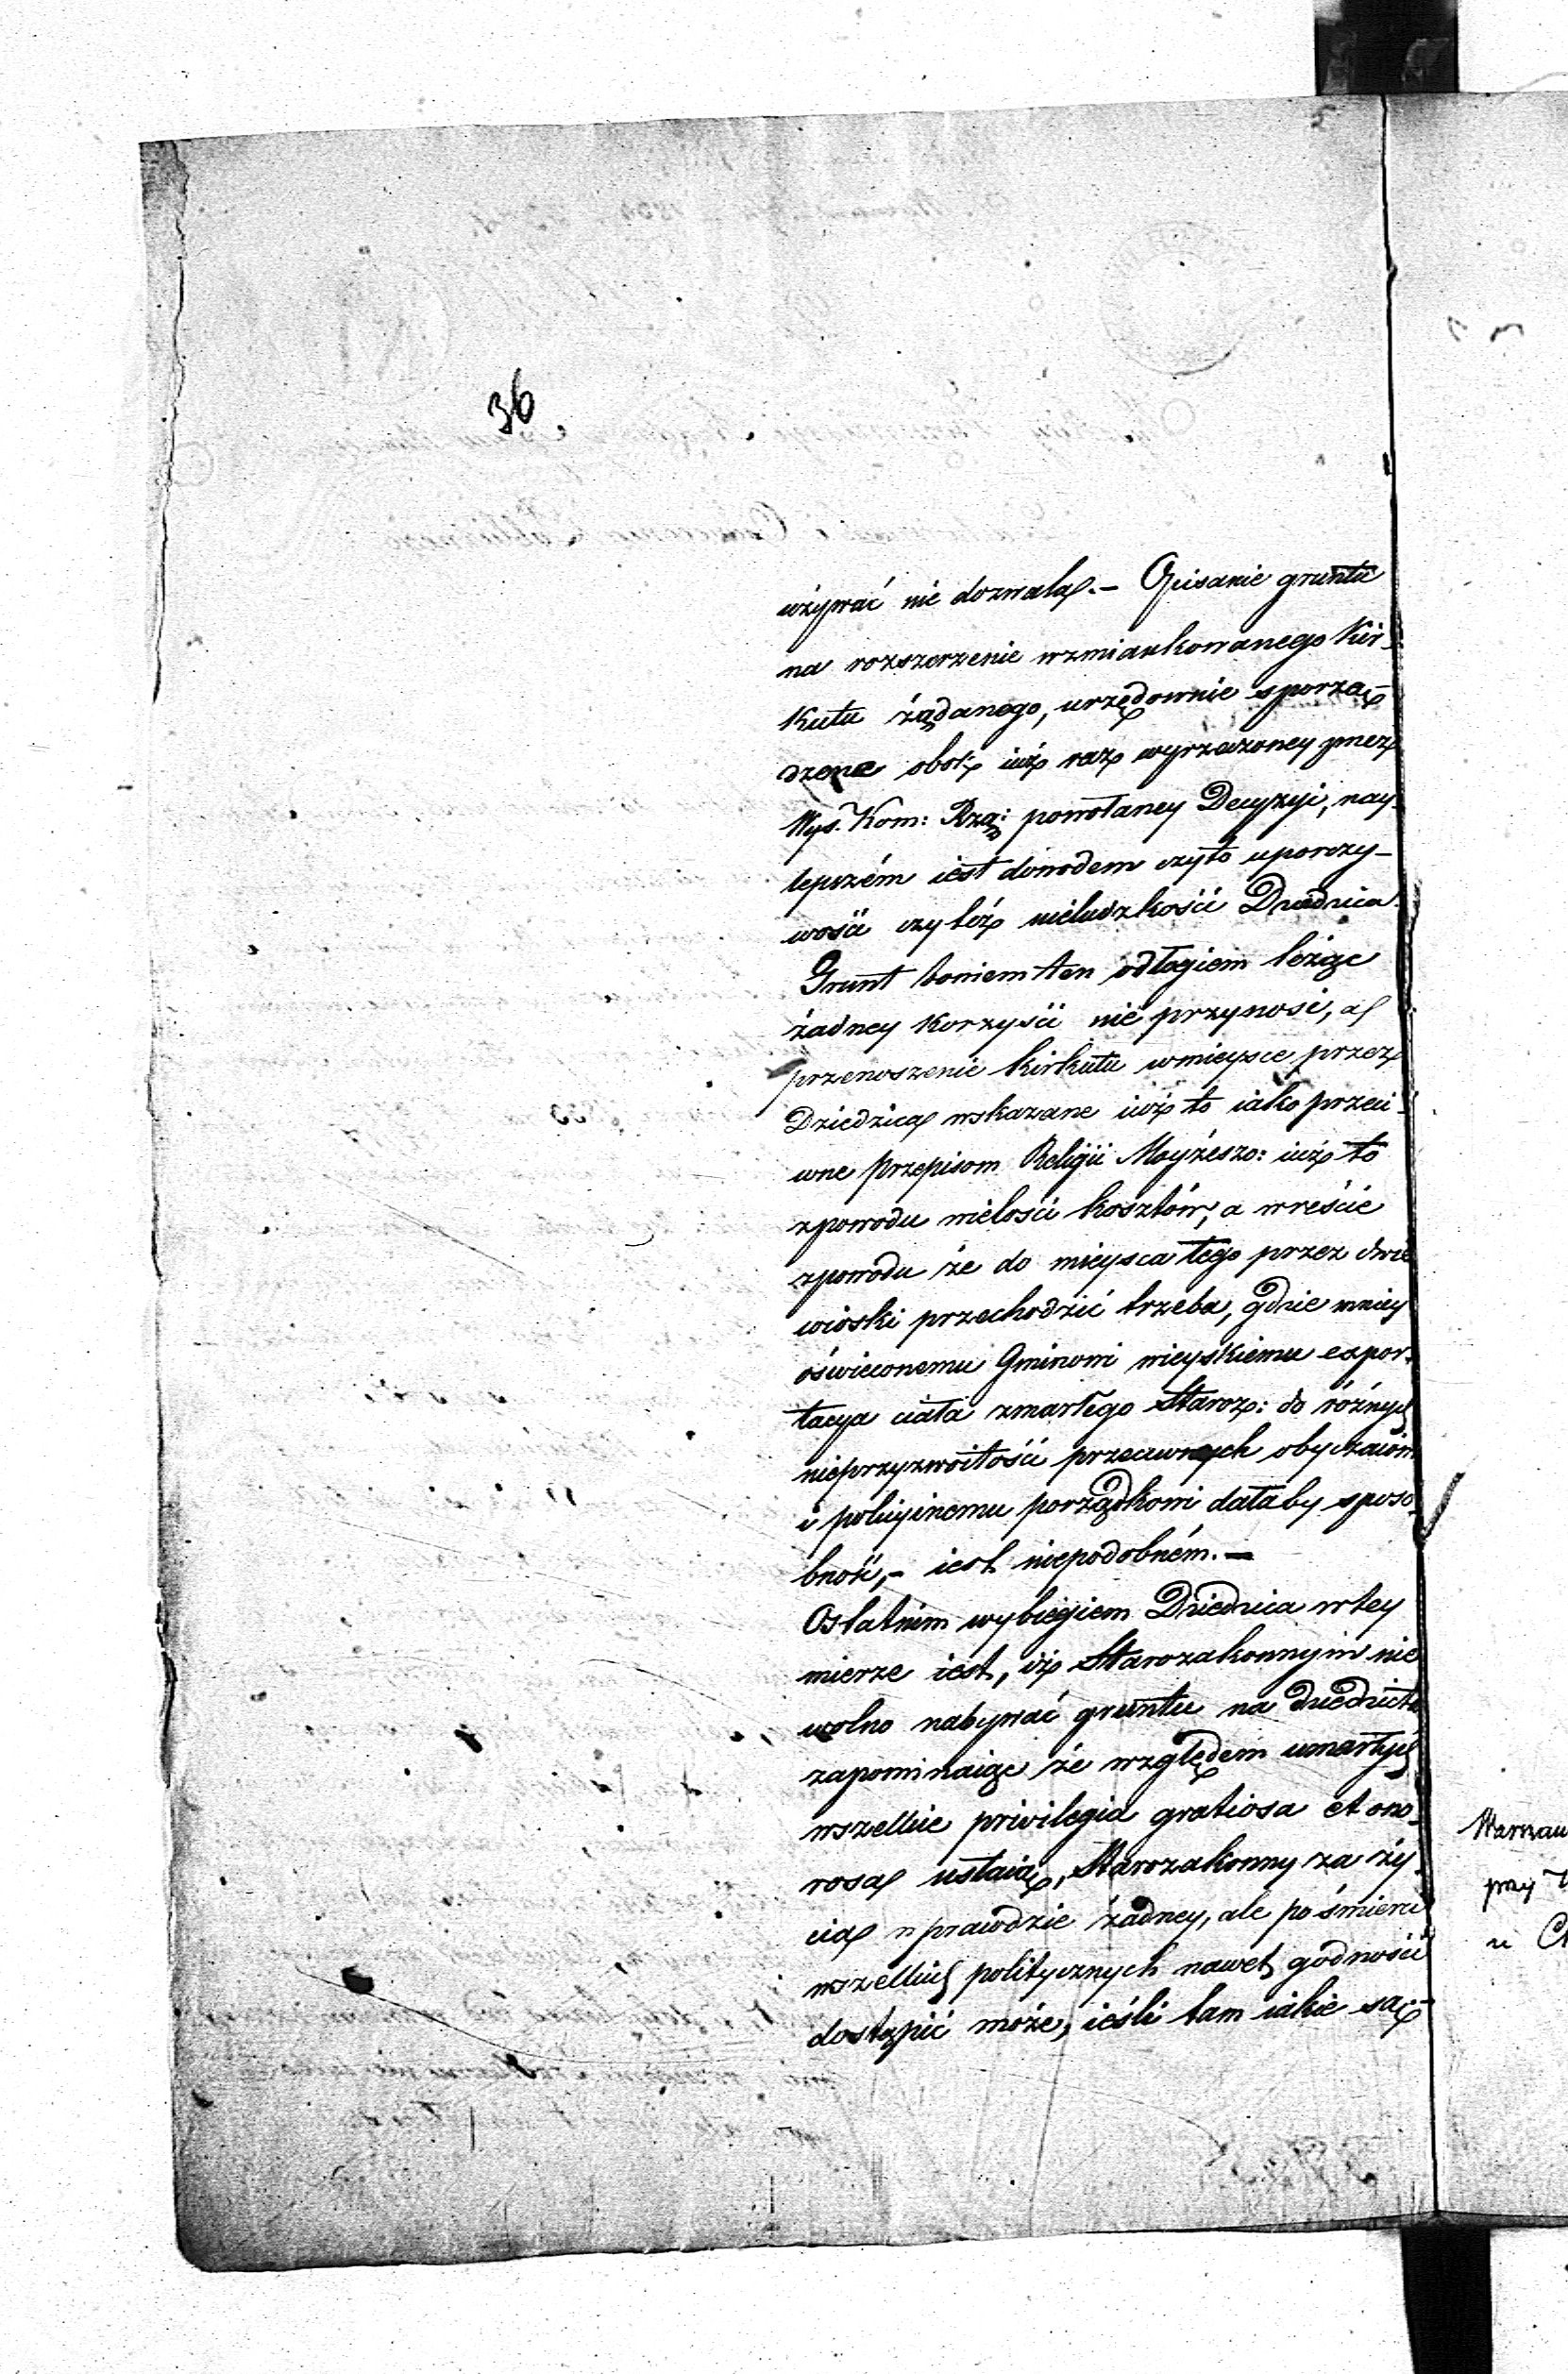 36.
używać nie dozwala.- Opisanie gruntu
na rozszerzenie wzmiankowanego Kir-
Kutu żądanego, urzędownie sporzą-
dzene obok iuż raz wyrzeczoney przez
Wys. Kom: Rzą: powołaney Decyzyi, nay-
lepszém iest dowodem czyto uporczy-
wości czyteż nieludzkości Dziedzica.
Grunt bowiem ten odłogiem leżąc
żadney Korzyści nie przynosi, a
przenoszenie kirkutu w mieysce przez
Dziedzica wskazane iuż to iako przeci-
wne przepisom Religii Moyżeszo: iuż to
zpowodu wielości kosztów, a wreście
zpowodu że do mieysca tego przez dwie
wioski przechodzić trzeba, gdzie mniey
oświeconemu Gminowi wieyskiemu expor-
tacya ciała zmarłego Staroz: do różnych
nieprzyzwoitości przeciwnych obyczaiom
i policyinemu porządkowi dałaby sposo-
bność,- iest niepodobném.-
Ostatnim wybiegiem Dziedzica w tey
mierze iest, iż Starozakonnym nie
wolno nabywać gruntu na dziedzictwo
zapominaiąc że względem umarłych
wszelkie privilegia gratiosa et ono-
rosa ustaią, Starozakonny za ży-
cia w prawdzie żadney, ale po śmierci
wszelkich politycznych nawet godności
dostąpić może, ieśli tam iakie są.-
Warszaw
przy